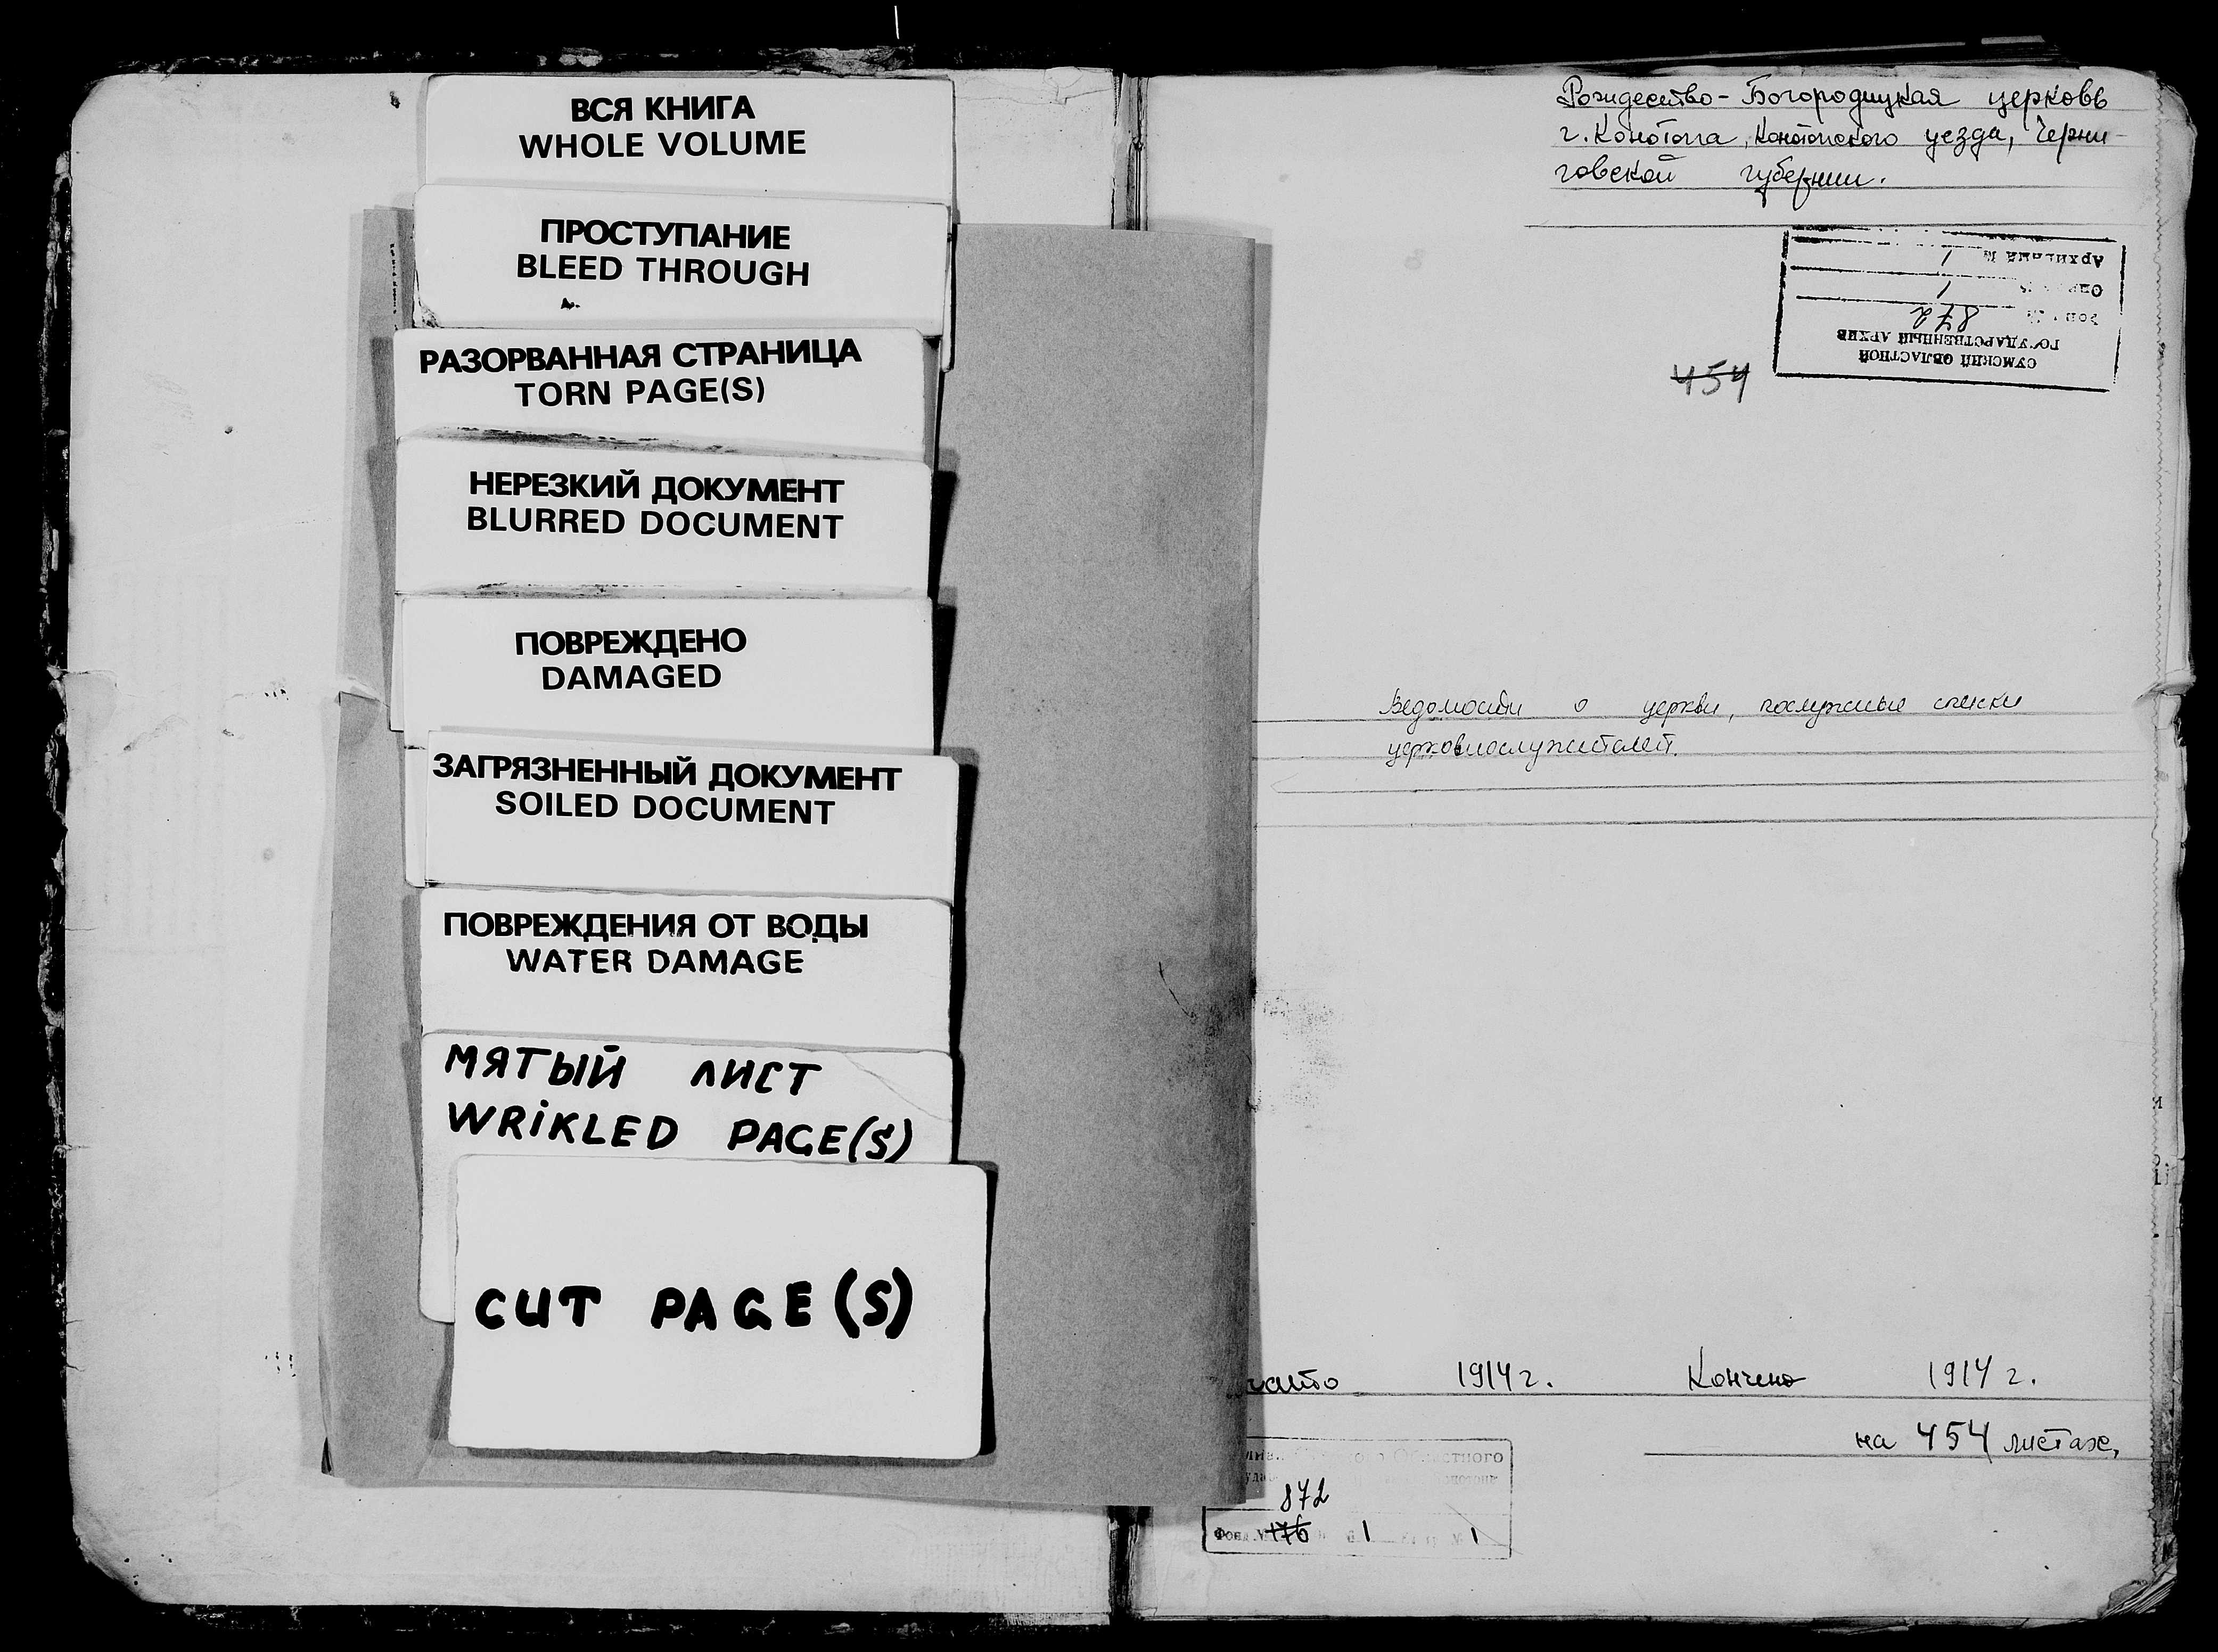 ВСЯ КНИГА
WHOLE VOLUME
ПРОСТУПАНИЕ
BLEED THROUGH
РАЗОРВАННАЯ СТРАНИЦА
TORN PAGE(S)
НЕРЕЗКИЙ ДОКУМЕНТ
BLURRED DOCUMENT
ПОВРЕЖДЕНО
DAMAGED
ЗАГРЯЗНЕННЫЙ ДОКУМЕНТ
SOILED DOCUMENT
ПОВРЕЖДЕНИЯ ОТ ВОДЫ
WATER DAMAGE
МЯТЫЙ ЛИСТ
WRIKLED PAGE(S)
CUT PAGE(S)
Рождество-Богородицкая церковь
г. Конотопа, Конотопского уезда, Черни-
говской губернии.
СУМСКИЙ ОБЛАСТНОЙ
ГОСУДАРСТВЕННЫЙ АРХИВ
872
1
1
454
Ведомости о церкви, послужные списки
церковнослужителей.
1914 г. Кончено 1914 г.
на 454 листах,
872
176 1 № 1